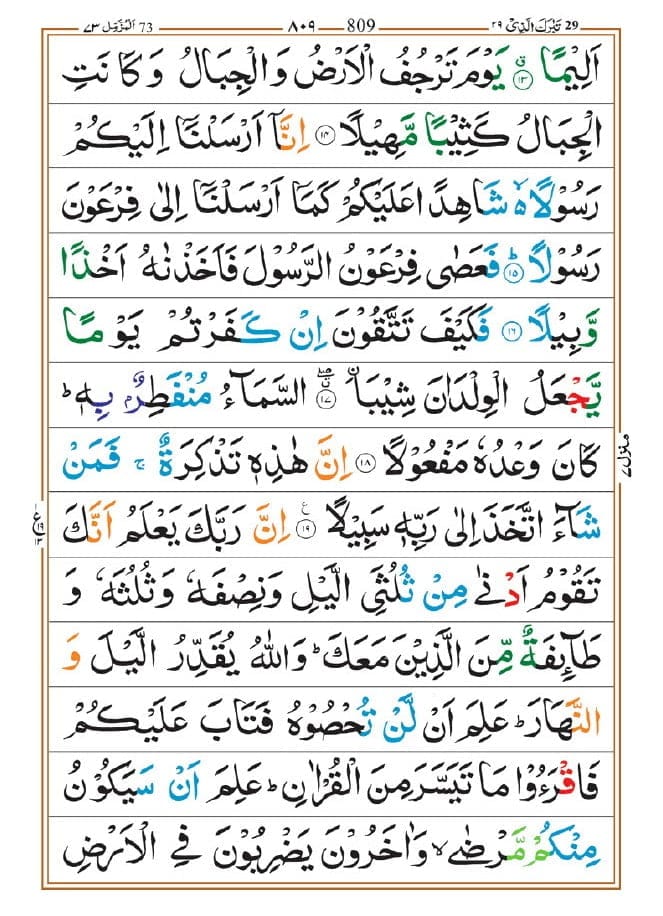 29 تَبٰرَكَ الَّذِیْ ۲۹ 809 ۸۰۹ 73 اَلْمُزَّمِّل ۷۳
اَلِیْمًا ۱۳ۗ یَوْمَ تَرْجُفُ الْاَرْضُ وَالْجِبَالُ وَكَانَتِ
الْجِبَالُ كَثِیْبًا مَّهِیْلًا ۱۴ اِنَّاۤ اَرْسَلْنَاۤ اِلَیْكُمْ
رَسُوْلًا ۙ۬ شَاهِدًا عَلَیْكُمْ كَمَاۤ اَرْسَلْنَاۤ اِلٰی فِرْعَوْنَ
رَسُوْلًا ؕ ۱۵ فَعَصٰی فِرْعَوْنُ الرَّسُوْلَ فَاَخَذْنٰهُ اَخْذًا
وَّبِیْلًا ۱۶ فَكَیْفَ تَتَّقُوْنَ اِنْ كَفَرْتُمْ یَوْمًا
یَّجْعَلُ الْوِلْدَانَ شِیْبَا ۱۷ ۣالسَّمَآءُ مُنْفَطِرٌۢ بِهٖ ؕ
كَانَ وَعْدُهٗ مَفْعُوْلًا ۱۸ اِنَّ هٰذِهٖ تَذْكِرَةٌ ۚ فَمَنْ
شَآءَ اتَّخَذَ اِلٰی رَبِّهٖ سَبِیْلًا ۱۹ ع اِنَّ رَبَّكَ یَعْلَمُ اَنَّكَ
تَقُوْمُ اَدْنٰی مِنْ ثُلُثَیِ الَّیْلِ وَنِصْفَهٗ وَثُلُثَهٗ وَ
طَآىِٕفَةٌ مِّنَ الَّذِیْنَ مَعَكَ ؕ وَاللّٰهُ یُقَدِّرُ الَّیْلَ وَ
النَّهَارَ ؕ عَلِمَ اَنْ لَّنْ تُحْصُوْهُ فَتَابَ عَلَیْكُمْ
فَاقْرَءُوْا مَا تَیَسَّرَ مِنَ الْقُرْاٰنِ ؕ عَلِمَ اَنْ سَیَكُوْنُ
مِنْكُمْ مَّرْضٰی ۙ وَاٰخَرُوْنَ یَضْرِبُوْنَ فِی الْاَرْضِ
منزل ۷
ع ۱۹ ۱۳